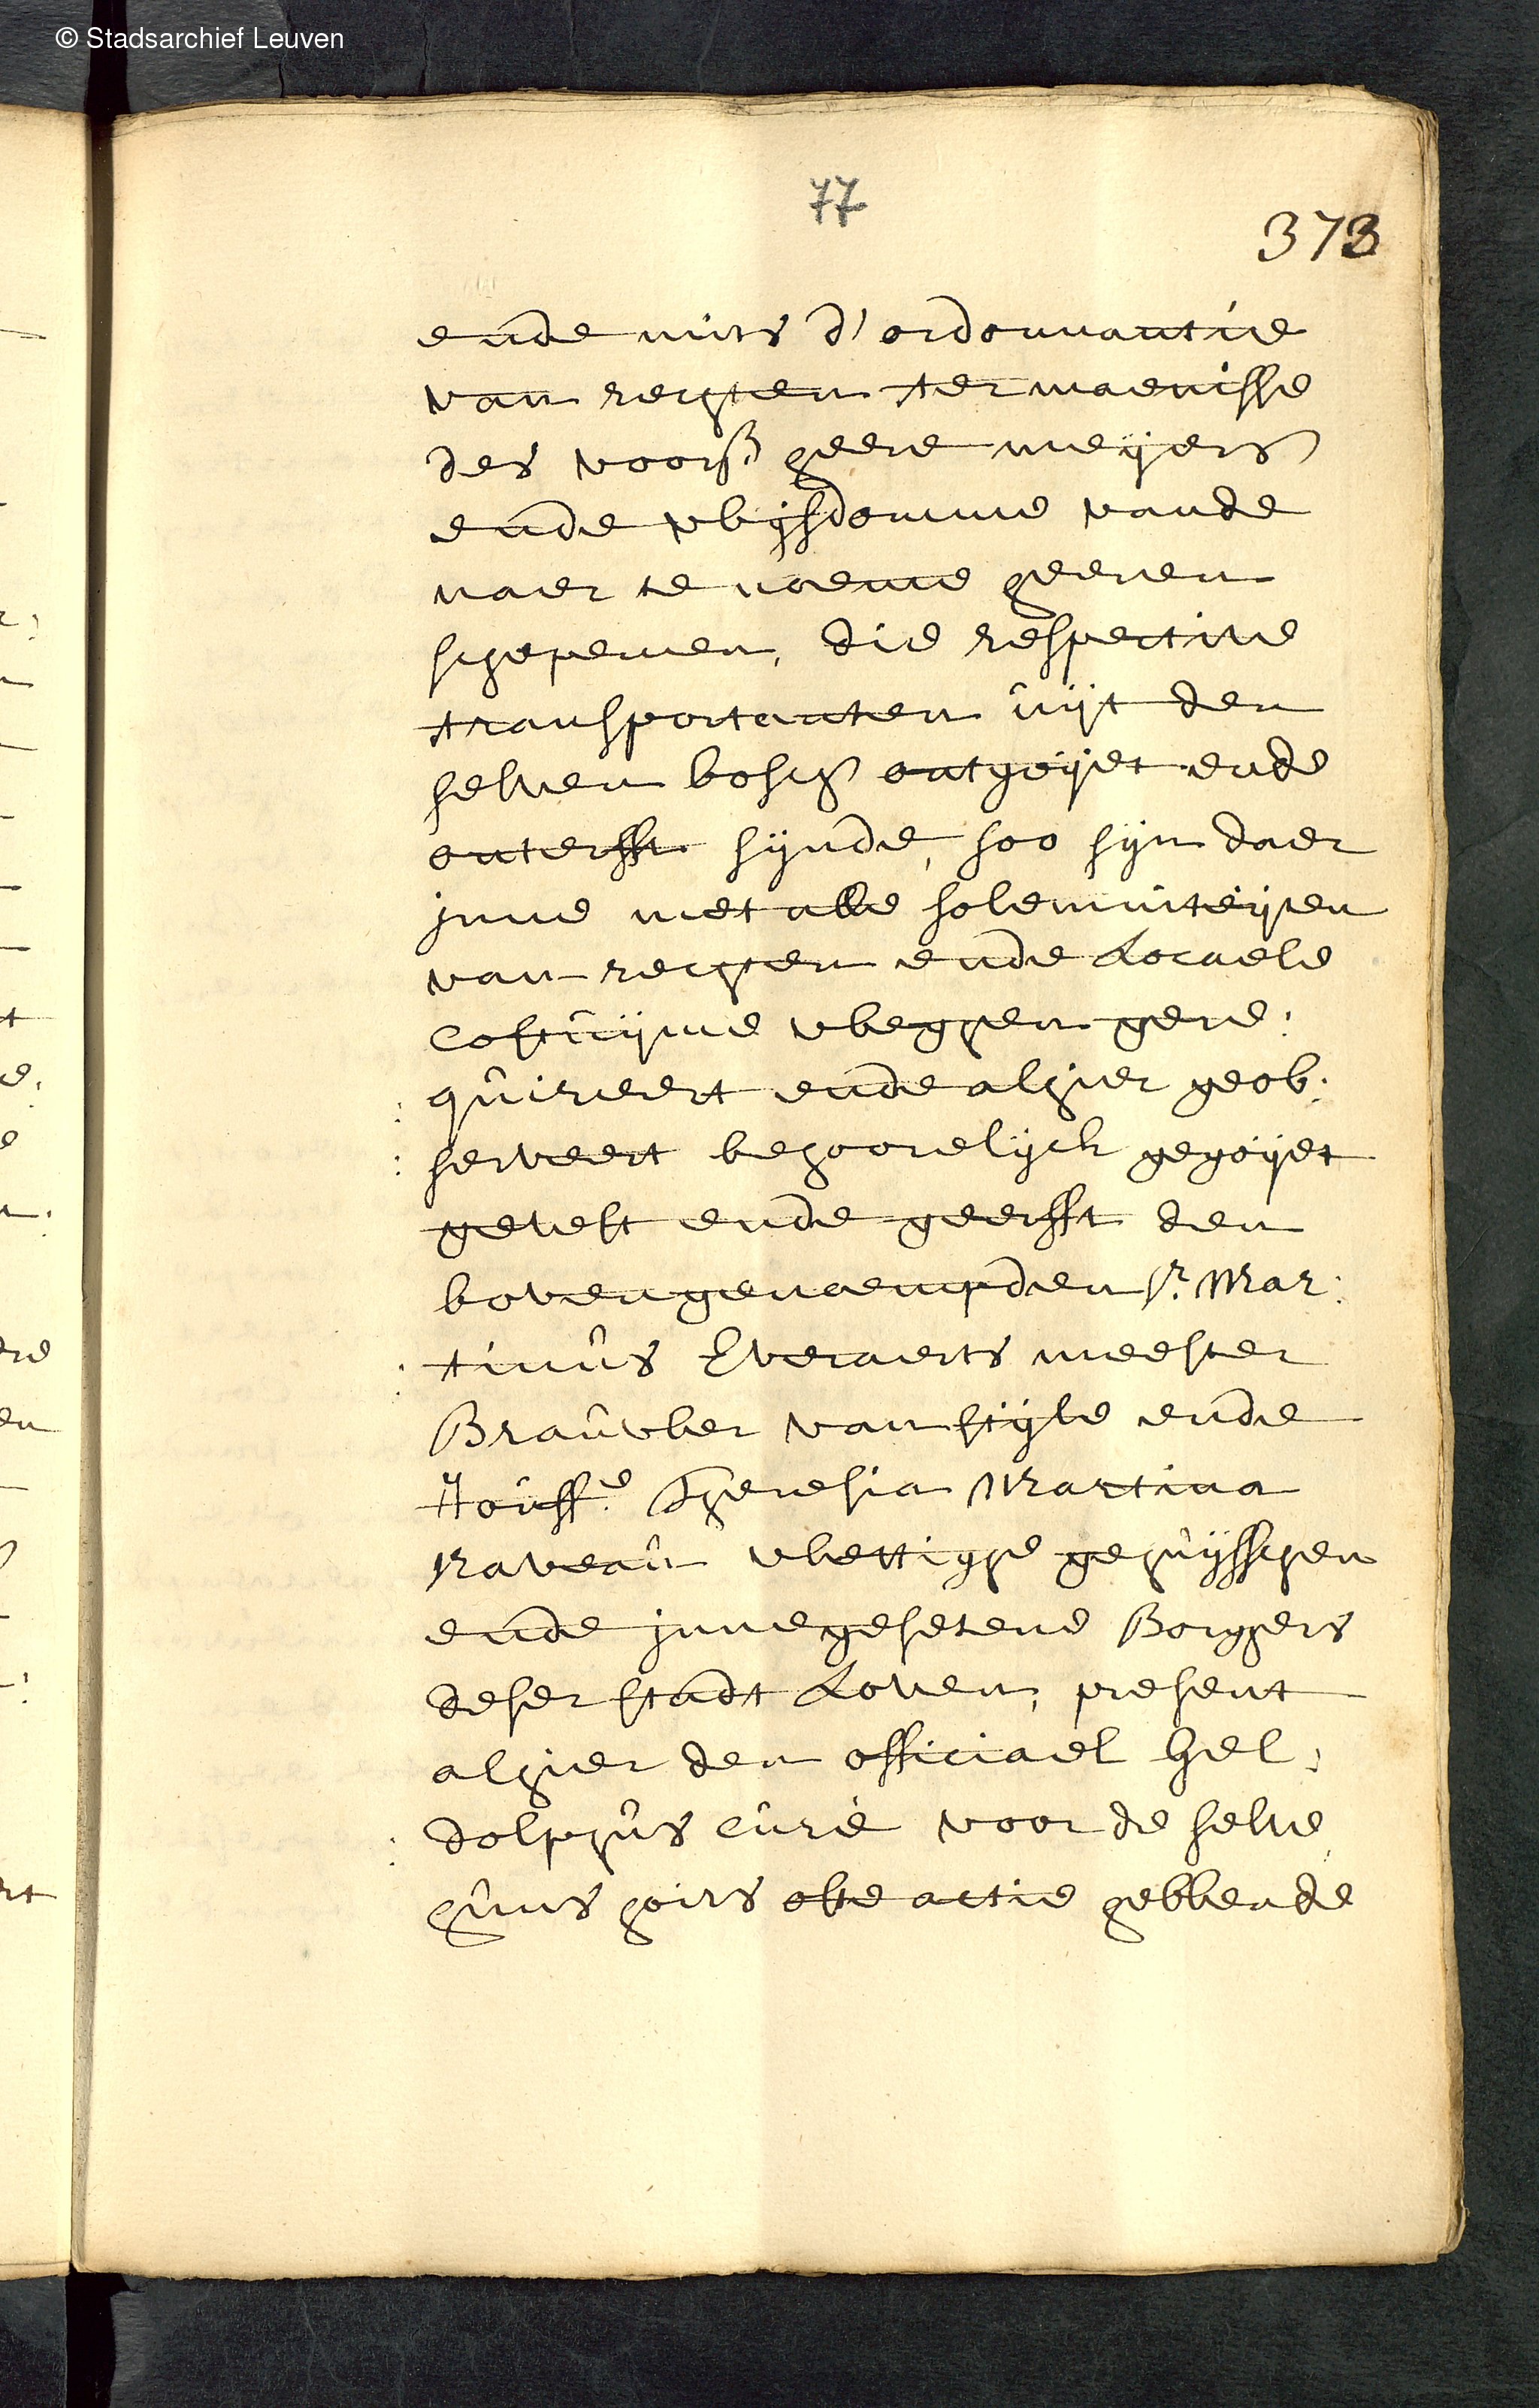 © Stadsarchief Leuven
77
373
ende mits d'ordonnantie
van rechten ter maenisse
des voors. heere meijers
ende wijsdomme vande
naer te noeme heeren
schepenen, die respective
transportanten uijt den
selven bosch ontgoijet ende
onterfft sijnde, soo sijn daer
inne met alle solemniteijten
van rechten ende Locaele
costuijme weghen gere:
: quireert ende alhier geob:
: serveert behoorelijck gegoijet
gevest ende geerfft den
bovengenaempden Sr. Mar:
: tinus Everaerts meester
Brauwer van stijle ende
Jouffe. Theresia Martina
Raveau wettighe gehuijsschen
ende innegesetene Borghers
deser stadt Loven, present
alhier den officiael Gel:
: dolphus curé voor de selve
huns hoirs ofte actie hebbende